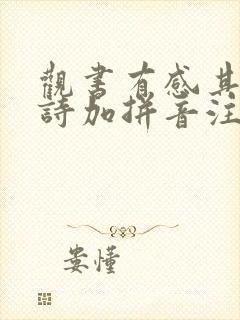 觀書有感其
詩加拼音注
娄懂